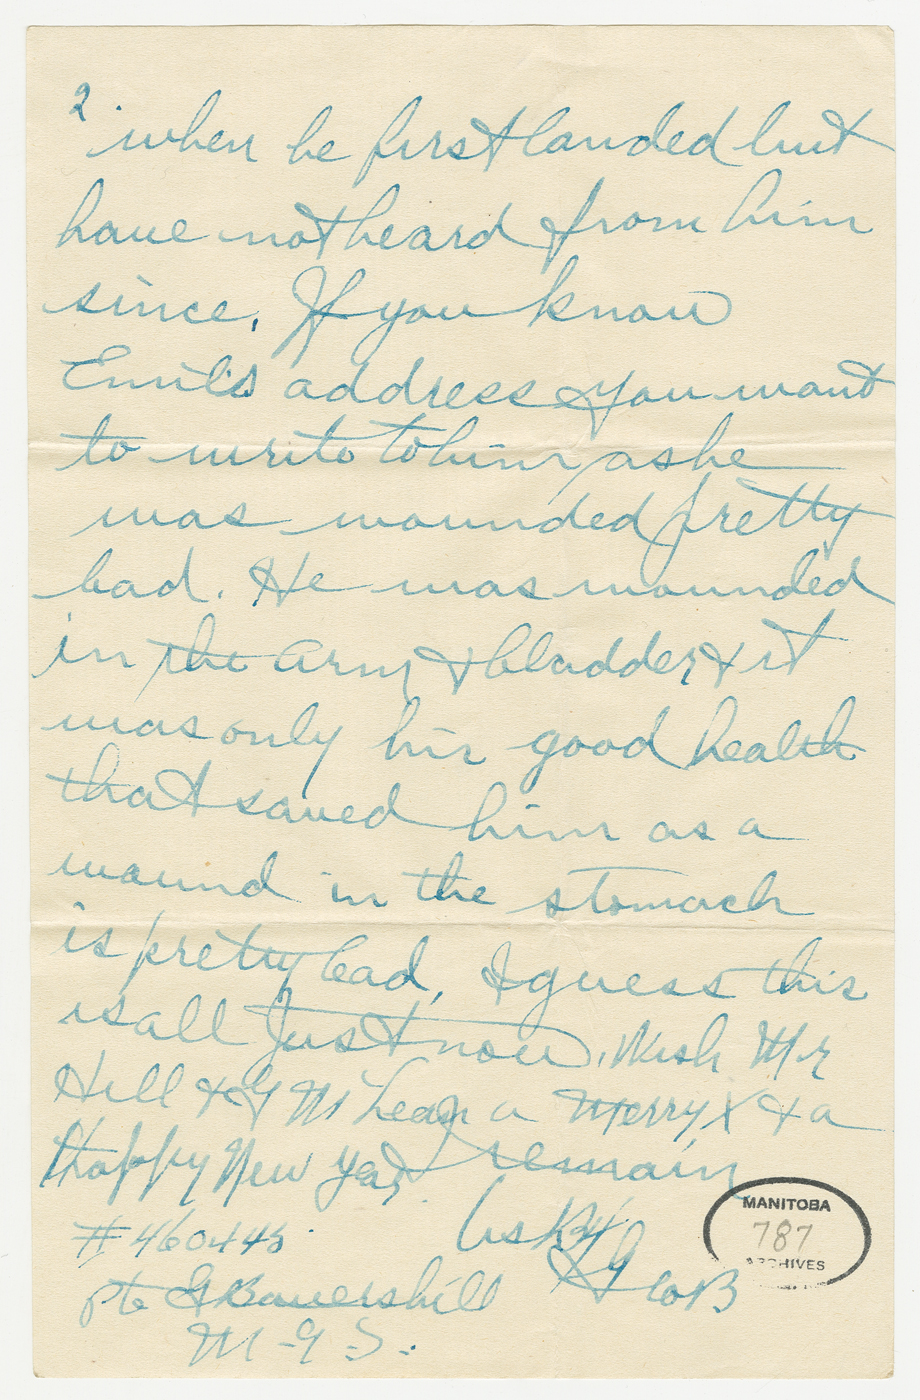 2.
when he first landed but
have not heard from him
since. If you know
Emil's address you want
to write to him as he
was wounded pretty
bad. He was wounded
in the arm & bladder & it
was only his good health
that saved him as a
wound in the stomach
is pretty bad, I guess this
is all just now. Wish Mr
Hill & G McLean a Merry X & a
Happy New Year. I remain
as
#460445.
Pte G Bauershill
M-G-S-.
MANITOBA
787
ARCHIVES